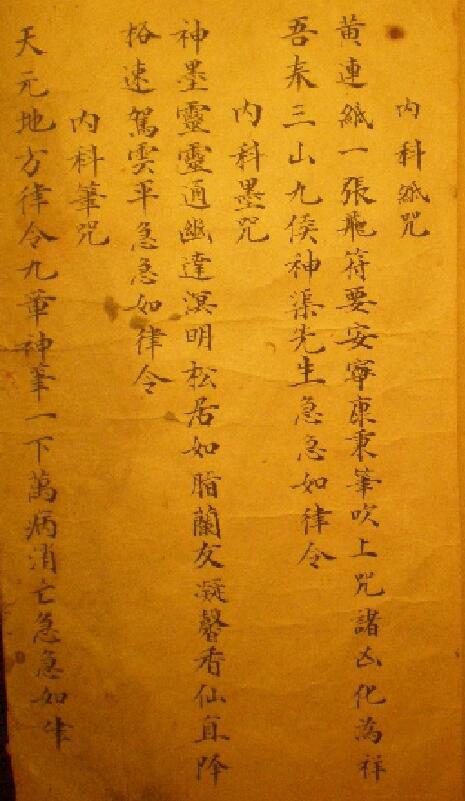 內科紙咒
黃連紙一張飛符要安寧康秉筆吹上咒諸凶化為祥
吾奉三山九侯神渠先生急急如律令
內科墨咒
神墨靈靈通幽達溟明松居如脂蘭友凝馨香仙真降
格速駕雲平急急如律令
內科筆咒
天元地方律令九華神筆一下萬病消亡急急如律